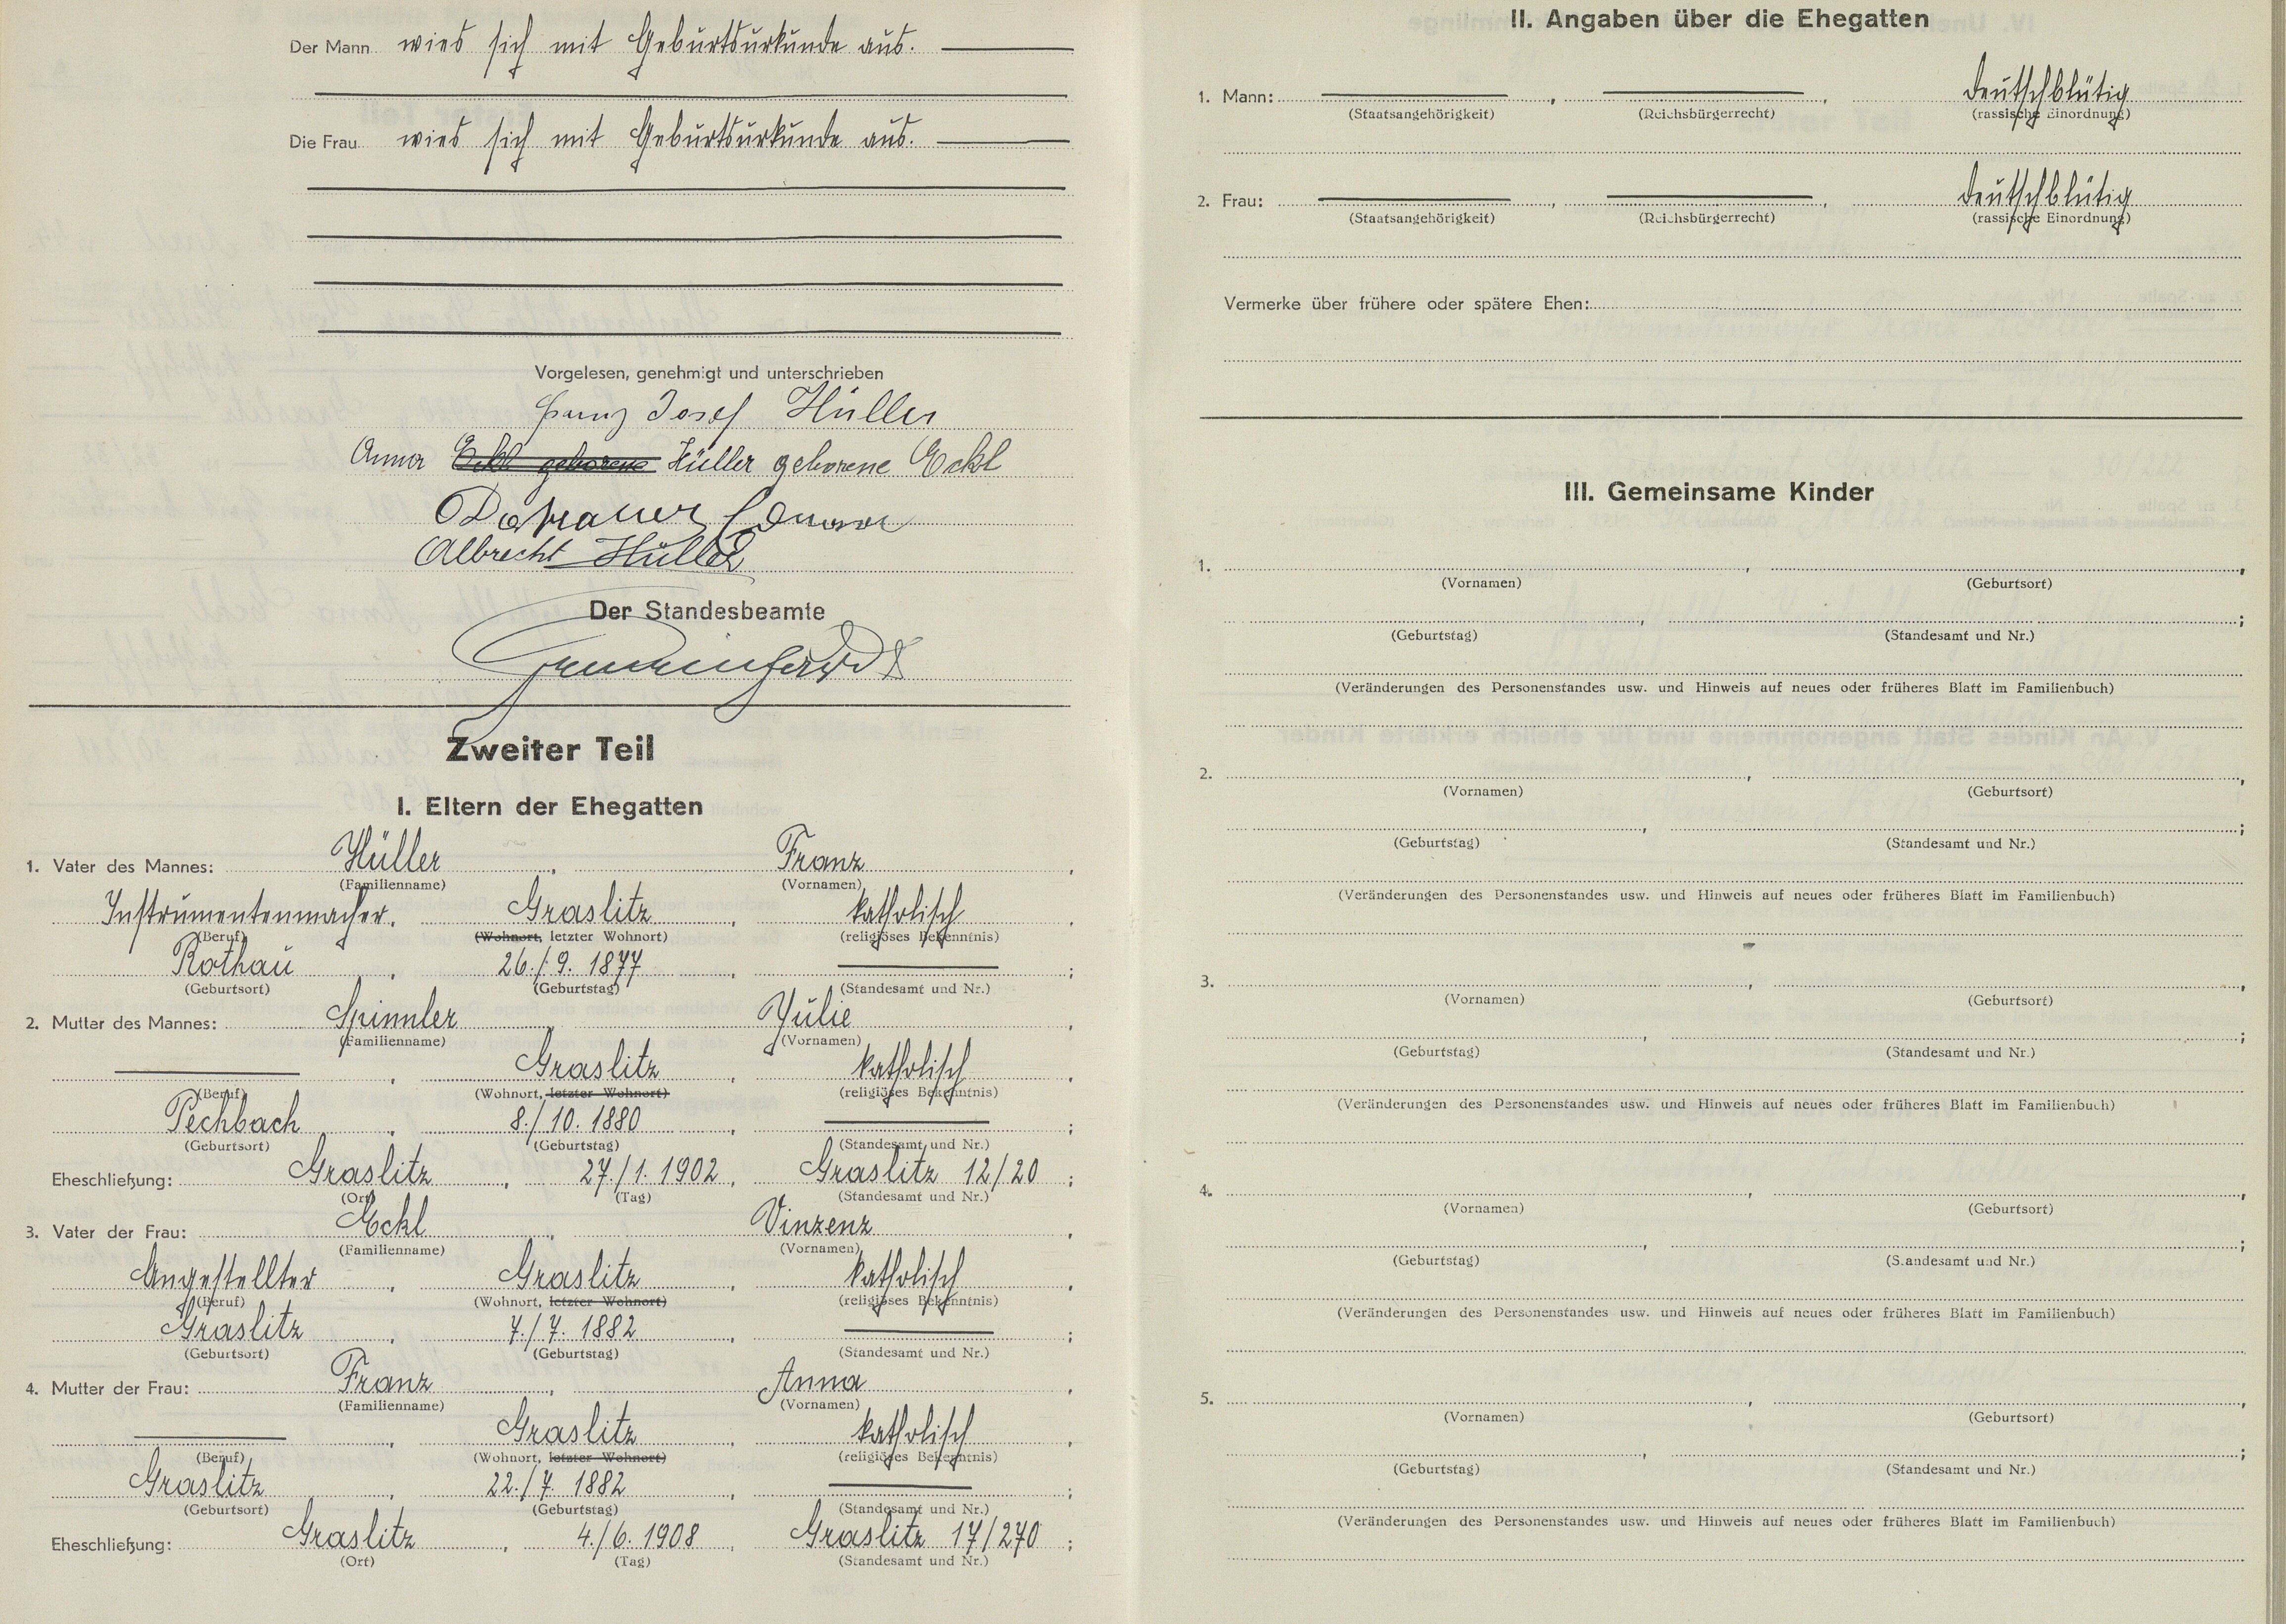 Der Mann wies sich mit Geburtsurkunde aus.
Die Frau wies sich mit Geburtsurkunde aus.
Vorgelesen, genehmigt und unterschrieben
Franz Josef Hüller
Anna Eckl geborene Hüller geborene Eckl
Albrecht Hüller
Der Standesbeamte
Zweiter Teil
I. Eltern der Ehegatten
1. Vater des Mannes: Hüller, Franz,
(Familienname) (Vornamen)
Instrumentenmacher, Graslitz, katholisch,
(Beruf) (Wohnort, letzter Wohnort) (religiöses Bekenntnis)
Rothau, 26./9. 1877, ;
(Geburtsort) (Geburtstag) (Standesamt und Nr.)
2. Mutter des Mannes: Spinnler, Julie,
(Familienname) (Vornamen)
, Graslitz, katholisch,
(Beruf) (Wohnort, letzter Wohnort) (religiöses Bekenntnis)
Pechbach, 8./10. 1880, ;
(Geburtsort) (Geburtstag) (Standesamt und Nr.)
Eheschließung: Graslitz, 27./1. 1902, Graslitz 12/20;
(Ort) (Tag) (Standesamt und Nr.)
3. Vater der Frau: Eckl, Vinzenz,
(Familienname) (Vornamen)
Angestellter, Graslitz, katholisch,
(Beruf) (Wohnort, letzter Wohnort) (religiöses Bekenntnis)
Graslitz, 7./7. 1882, ;
(Geburtsort) (Geburtstag) (Standesamt und Nr.)
4. Mutter der Frau: Franz, Anna,
(Familienname) (Vornamen)
, Graslitz, katholisch,
(Beruf) (Wohnort, letzter Wohnort) (religiöses Bekenntnis)
Graslitz, 22./7. 1882, ;
(Geburtsort) (Geburtstag) (Standesamt und Nr.)
Eheschließung: Graslitz, 4./6. 1908, Graslitz 17/270;
(Ort) (Tag) (Standesamt und Nr.)
II. Angaben über die Ehegatten
1. Mann: , , deutschblütig
(Staatsangehörigkeit) (Reichsbürgerrecht) (rassische Einordnung)
2. Frau: , , deutschblütig
(Staatsangehörigkeit) (Reichsbürgerrecht) (rassische Einordnung)
Vermerke über frühere oder spätere Ehen:
III. Gemeinsame Kinder
1. , ,
(Vornamen) (Geburtsort)
, ;
(Geburtstag) (Standesamt und Nr.)
(Veränderungen des Personenstandes usw. und Hinweis auf neues oder früheres Blatt im Familienbuch)
2. , ,
(Vornamen) (Geburtsort)
, ;
(Geburtstag) (Standesamt und Nr.)
(Veränderungen des Personenstandes usw. und Hinweis auf neues oder früheres Blatt im Familienbuch)
3. , ,
(Vornamen) (Geburtsort)
, ;
(Geburtstag) (Standesamt und Nr.)
(Veränderungen des Personenstandes usw. und Hinweis auf neues oder früheres Blatt im Familienbuch)
4. , ,
(Vornamen) (Geburtsort)
, ;
(Geburtstag) (Standesamt und Nr.)
(Veränderungen des Personenstandes usw. und Hinweis auf neues oder früheres Blatt im Familienbuch)
5. , ,
(Vornamen) (Geburtsort)
, ;
(Geburtstag) (Standesamt und Nr.)
(Veränderungen des Personenstandes usw. und Hinweis auf neues oder früheres Blatt im Familienbuch)